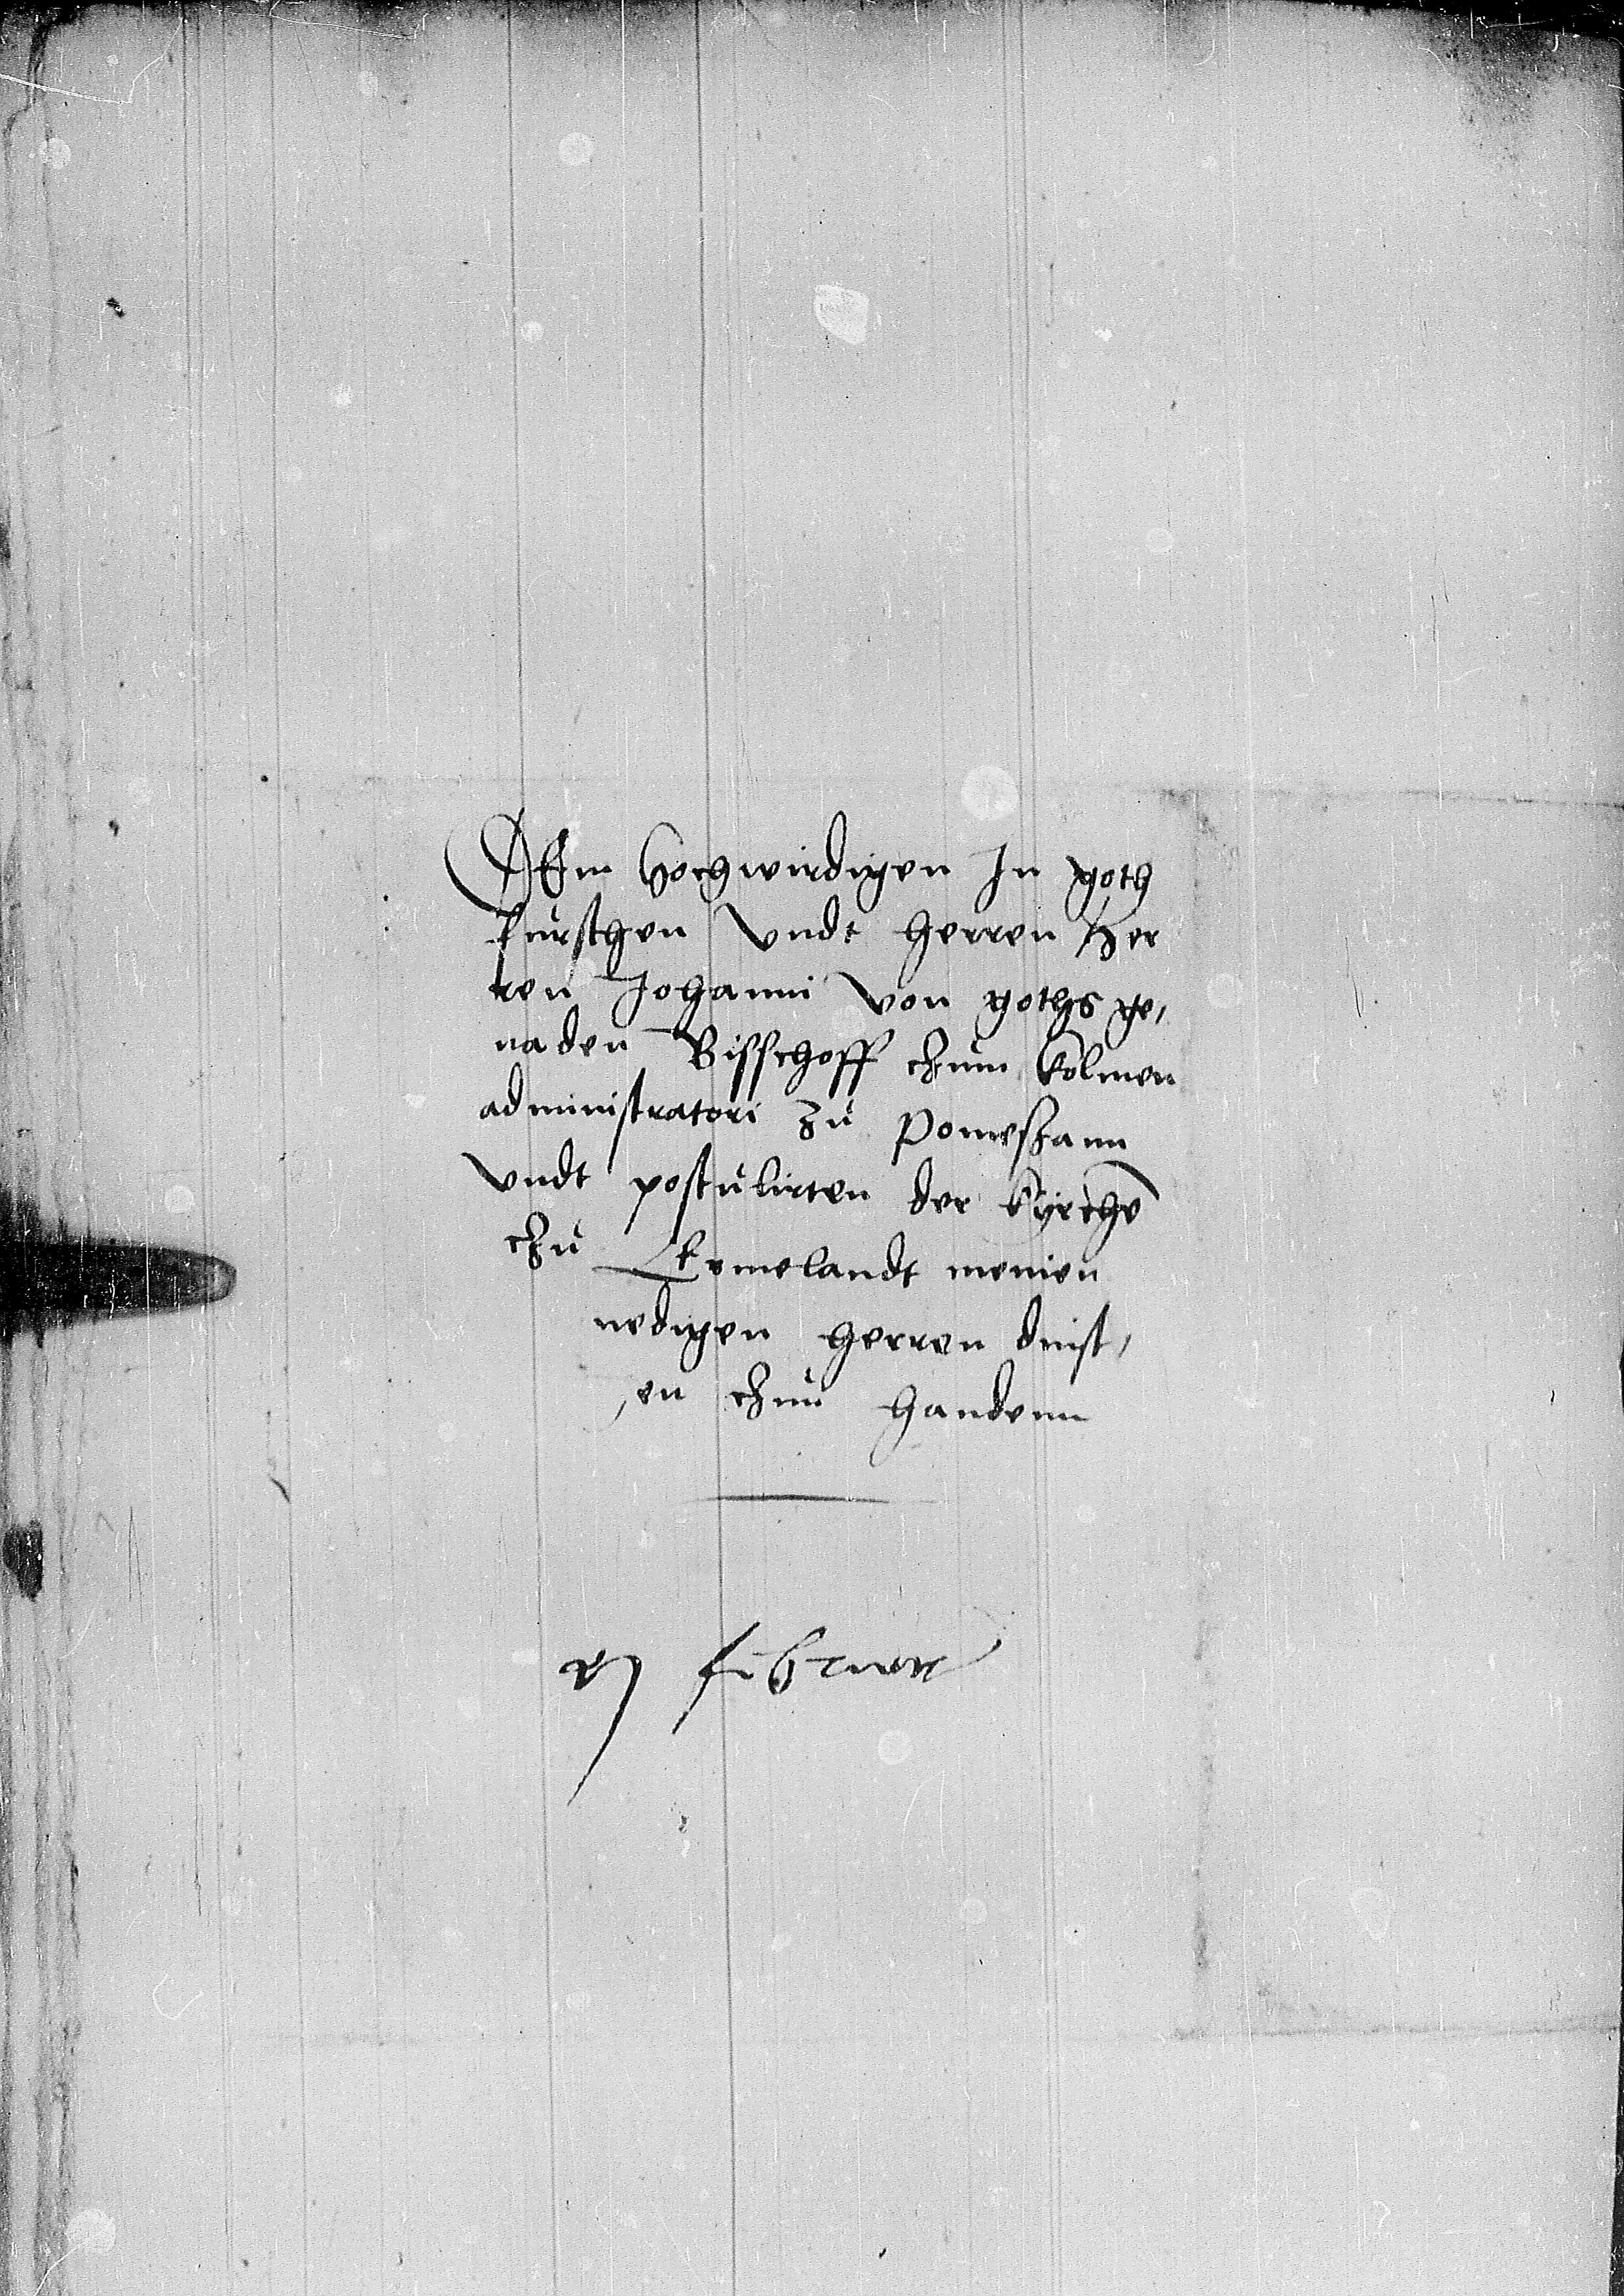 DEm hochwirdigen In goth
furschen vndt herren her
ren Johanni von goths ge,
naden Bisschoff czum Colmen
administratori zu pomeszann
vndt postulirten der kyrche
czu Ermelandt meinen
nedigen herren dinst,
en czun handenn